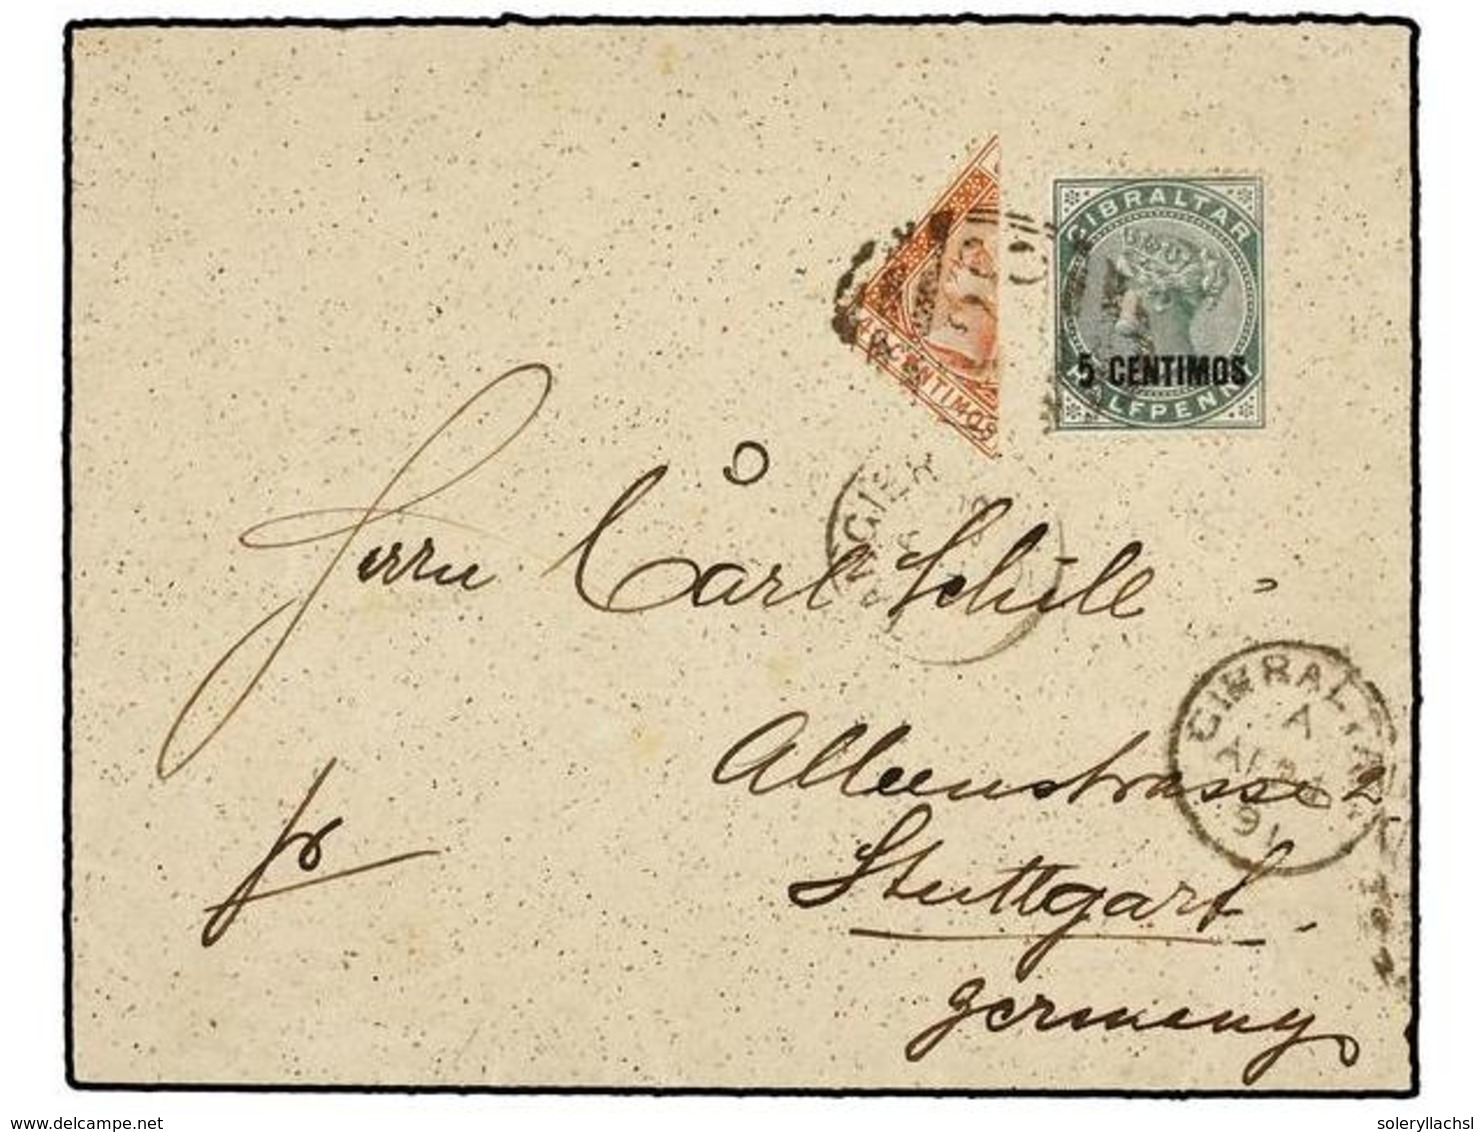 GIBRALTAR
5 CENTIMOS
HALFPENNY
40 CENTIMOS
Herrn Carl Schüle
Alleenstrasse 2
Stuttgart
Germany
GIBRALTAR
A
91
delcampe.net
soleryllachsl